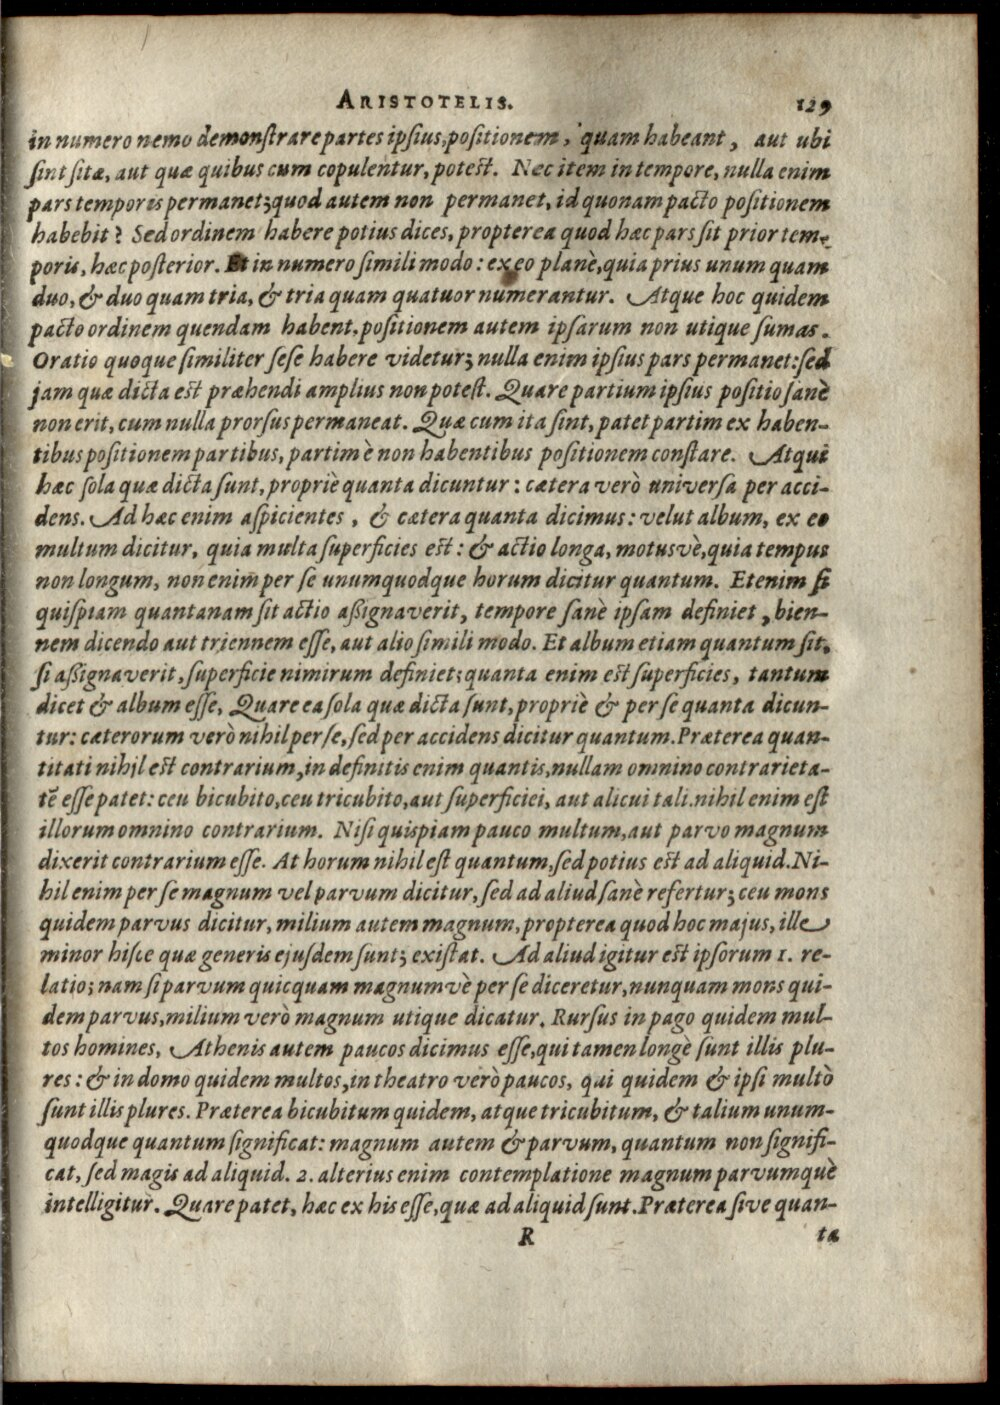 ARISTOTELIS. 129
in numero nemo demonstrare partes ipsius, positionem, quam habeant, aut ubi
sint sitæ, aut quæ quibus cum copulentur, potest. Nec item in tempore, nulla enim
pars temporis permanet; quod autem non permanet, id quonam pacto positionem
habebit? Sed ordinem habere potius dices, propterea quod hæc pars sit prior tem-
poris, hæc posterior. Et in numero simili modo: ex eo planè, quia prius unum quam
duo, & duo quam tria, & tria quam quatuor numerantur. Atque hoc quidem
pacto ordinem quendam habent. positionem autem ipsarum non utique sumas.
Oratio quoque similiter sese habere videtur; nulla enim ipsius pars permanet: sed
jam quæ dicta est præhendi amplius non potest. Quare partium ipsius positio sanè
non erit, cum nulla prorsus permaneat. Quæ cum ita sint, patet partim ex haben-
tibus positionem partibus, partim è non habentibus positionem constare. Atqui
hæc sola quæ dicta sunt, propriè quanta dicuntur: cætera verò universa per acci-
dens. Ad hæc enim aspicientes, & cætera quanta dicimus: velut album, ex eo
multum dicitur, quia multa superficies est: & actio longa, motusvè, quia tempus
non longum, non enim per se unumquodque horum dicitur quantum. Etenim si
quispiam quantanam sit actio assignaverit, tempore sanè ipsam definiet, bien-
nem dicendo aut triennem esse, aut alio simili modo. Et album etiam quantum sit,
si assignaverit, superficie nimirum definiet; quanta enim est superficies, tantum
dicet & album esse, Quare ea sola quæ dicta sunt, propriè & per se quanta dicun-
tur: cæterorum verò nihil per se, sed per accidens dicitur quantum. Præterea quan-
titati nihil est contrarium, in definitis enim quantis, nullam omnino contrarieta-
tē esse patet: ceu bicubito, ceu tricubito, aut superficiei, aut alicui tali. nihil enim est
illorum omnino contrarium. Nisi quispiam pauco multum, aut parvo magnum
dixerit contrarium esse. At horum nihil est quantum, sed potius est ad aliquid. Ni-
hil enim per se magnum vel parvum dicitur, sed ad aliud sanè refertur; ceu mons
quidem parvus dicitur, milium autem magnum, propterea quod hoc majus, ille
minor hisce quæ generis ejusdem sunt; existat. Ad aliud igitur est ipsorum 1. re-
latio; nam si parvum quicquam magnumvè per se diceretur, nunquam mons qui-
dem parvus, milium verò magnum utique dicatur. Rursus in pago quidem mul-
tos homines, Athenis autem paucos dicimus esse, qui tamen longè sunt illis plu-
res: & in domo quidem multos, in theatro verò paucos, qui quidem & ipsi multò
sunt illis plures. Præterea bicubitum quidem, atque tricubitum, & talium unum-
quodque quantum significat: magnum autem & parvum, quantum non signifi-
cat, sed magis ad aliquid. 2. alterius enim contemplatione magnum parvumquè
intelligitur. Quare patet, hæc ex his esse, quæ ad aliquid sunt. Præterea sive quan-
R tæ